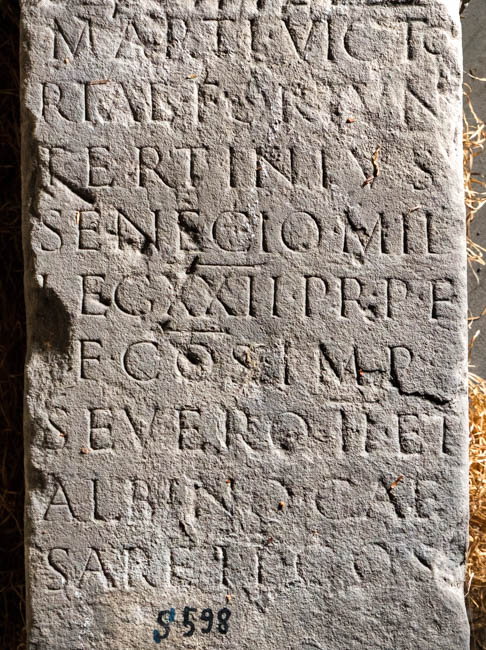 MARTI·VICT
RIAE·FORTVN
TERTINIVS
SENECIO·MIL
LEG XXII·PR·P·F
F·COS IMP
SEVERO·II·ET
ALBINO·CAE
SARE II COS
S 598